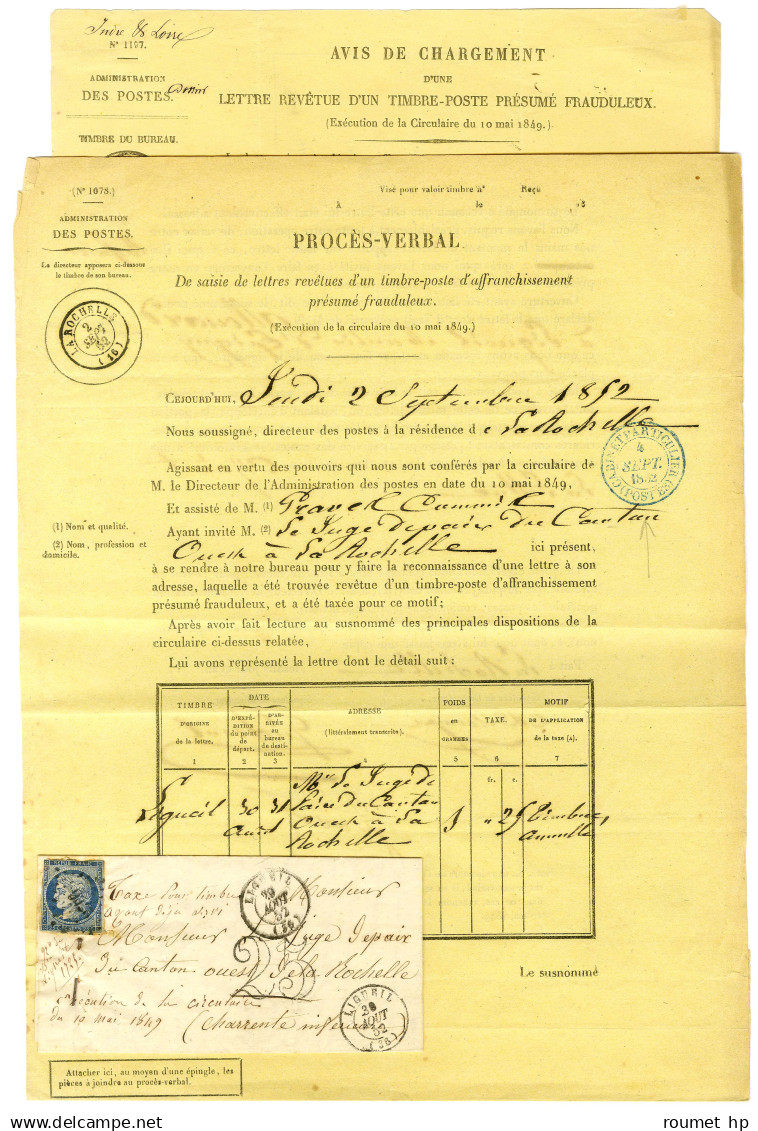 Indre & Loire
N° 1107.
ADMINISTRATION
DES POSTES.
TIMBRE DU BUREAU.
AVIS DE CHARGEMENT
D'UNE
LETTRE REVÊTUE D'UN TIMBRE-POSTE PRÉSUMÉ FRAUDULEUX.
(Exécution de la Circulaire du 10 mai 1849.)
(N° 1078.)
ADMINISTRATION
DES POSTES.
Le directeur apposera ci-dessous
le timbre de son bureau.
LA ROCHELLE
2
SEPT
52
(16)
Visé pour valoir timbre à Reçu
à le
PROCÈS-VERBAL
De saisie de lettres revêtues d'un timbre-poste d'affranchissement
présumé frauduleux.
(Exécution de la circulaire du 10 mai 1849.)
CEJOURD'HUI, Jeudi 2 Septembre 1852
Nous soussigné, directeur des postes à la résidence de La Rochelle
CABINET PARTICULIER (POSTES)
4
SEPT.
1852
Agissant en vertu des pouvoirs qui nous sont conférés par la circulaire de
M. le Directeur de l'Administration des postes en date du 10 mai 1849,
Et assisté de M. (1)
Ayant invité M. (2) Le Juge de paix du Canton
Ouest à La Rochelle ici présent,
(1) Nom et qualité.
(2) Nom, profession et
domicile.
à se rendre à notre bureau pour y faire la reconnaissance d'une lettre à son
adresse, laquelle a été trouvée revêtue d'un timbre-poste d'affranchissement
présumé frauduleux, et a été taxée pour ce motif;
Après avoir fait lecture au susnommé des principales dispositions de la
circulaire ci-dessus relatée,
Lui avons représenté la lettre dont le détail suit :
TIMBRE
D'ORIGINE
de la lettre.
1
DATE
D'EXPÉ-
DITION
du point
de
départ.
2
D'AR-
RIVÉE
au
bureau
de desti-
nation.
3
ADRESSE
(littéralement transcrite).
4
POIDS
EN
GRAMMES
5
TAXE.
6
fr. c.
MOTIF
DE L'APPLICATION
de la taxe (a).
7
Ligueil
30
Août
31
Mr Le Juge de
Paix du Canton
Ouest à La
Rochelle
" 25
Timbre
annulé
REPUB. FRANC.
Taxe pour timbre
ayant déjà servi
LIGUEIL
29
AOUT
52
(36)
Monsieur
Monsieur Juge De paix
Du Canton ouest De la Rochelle
25
Exécution de la circulaire
du 10 mai 1849
(Charrente inférieure)
LIGUEIL
29
AOUT
52
(36)
Le susnommé
Attacher ici, au moyen d'une épingle, les
pièces à joindre au procès-verbal.
roumet hp